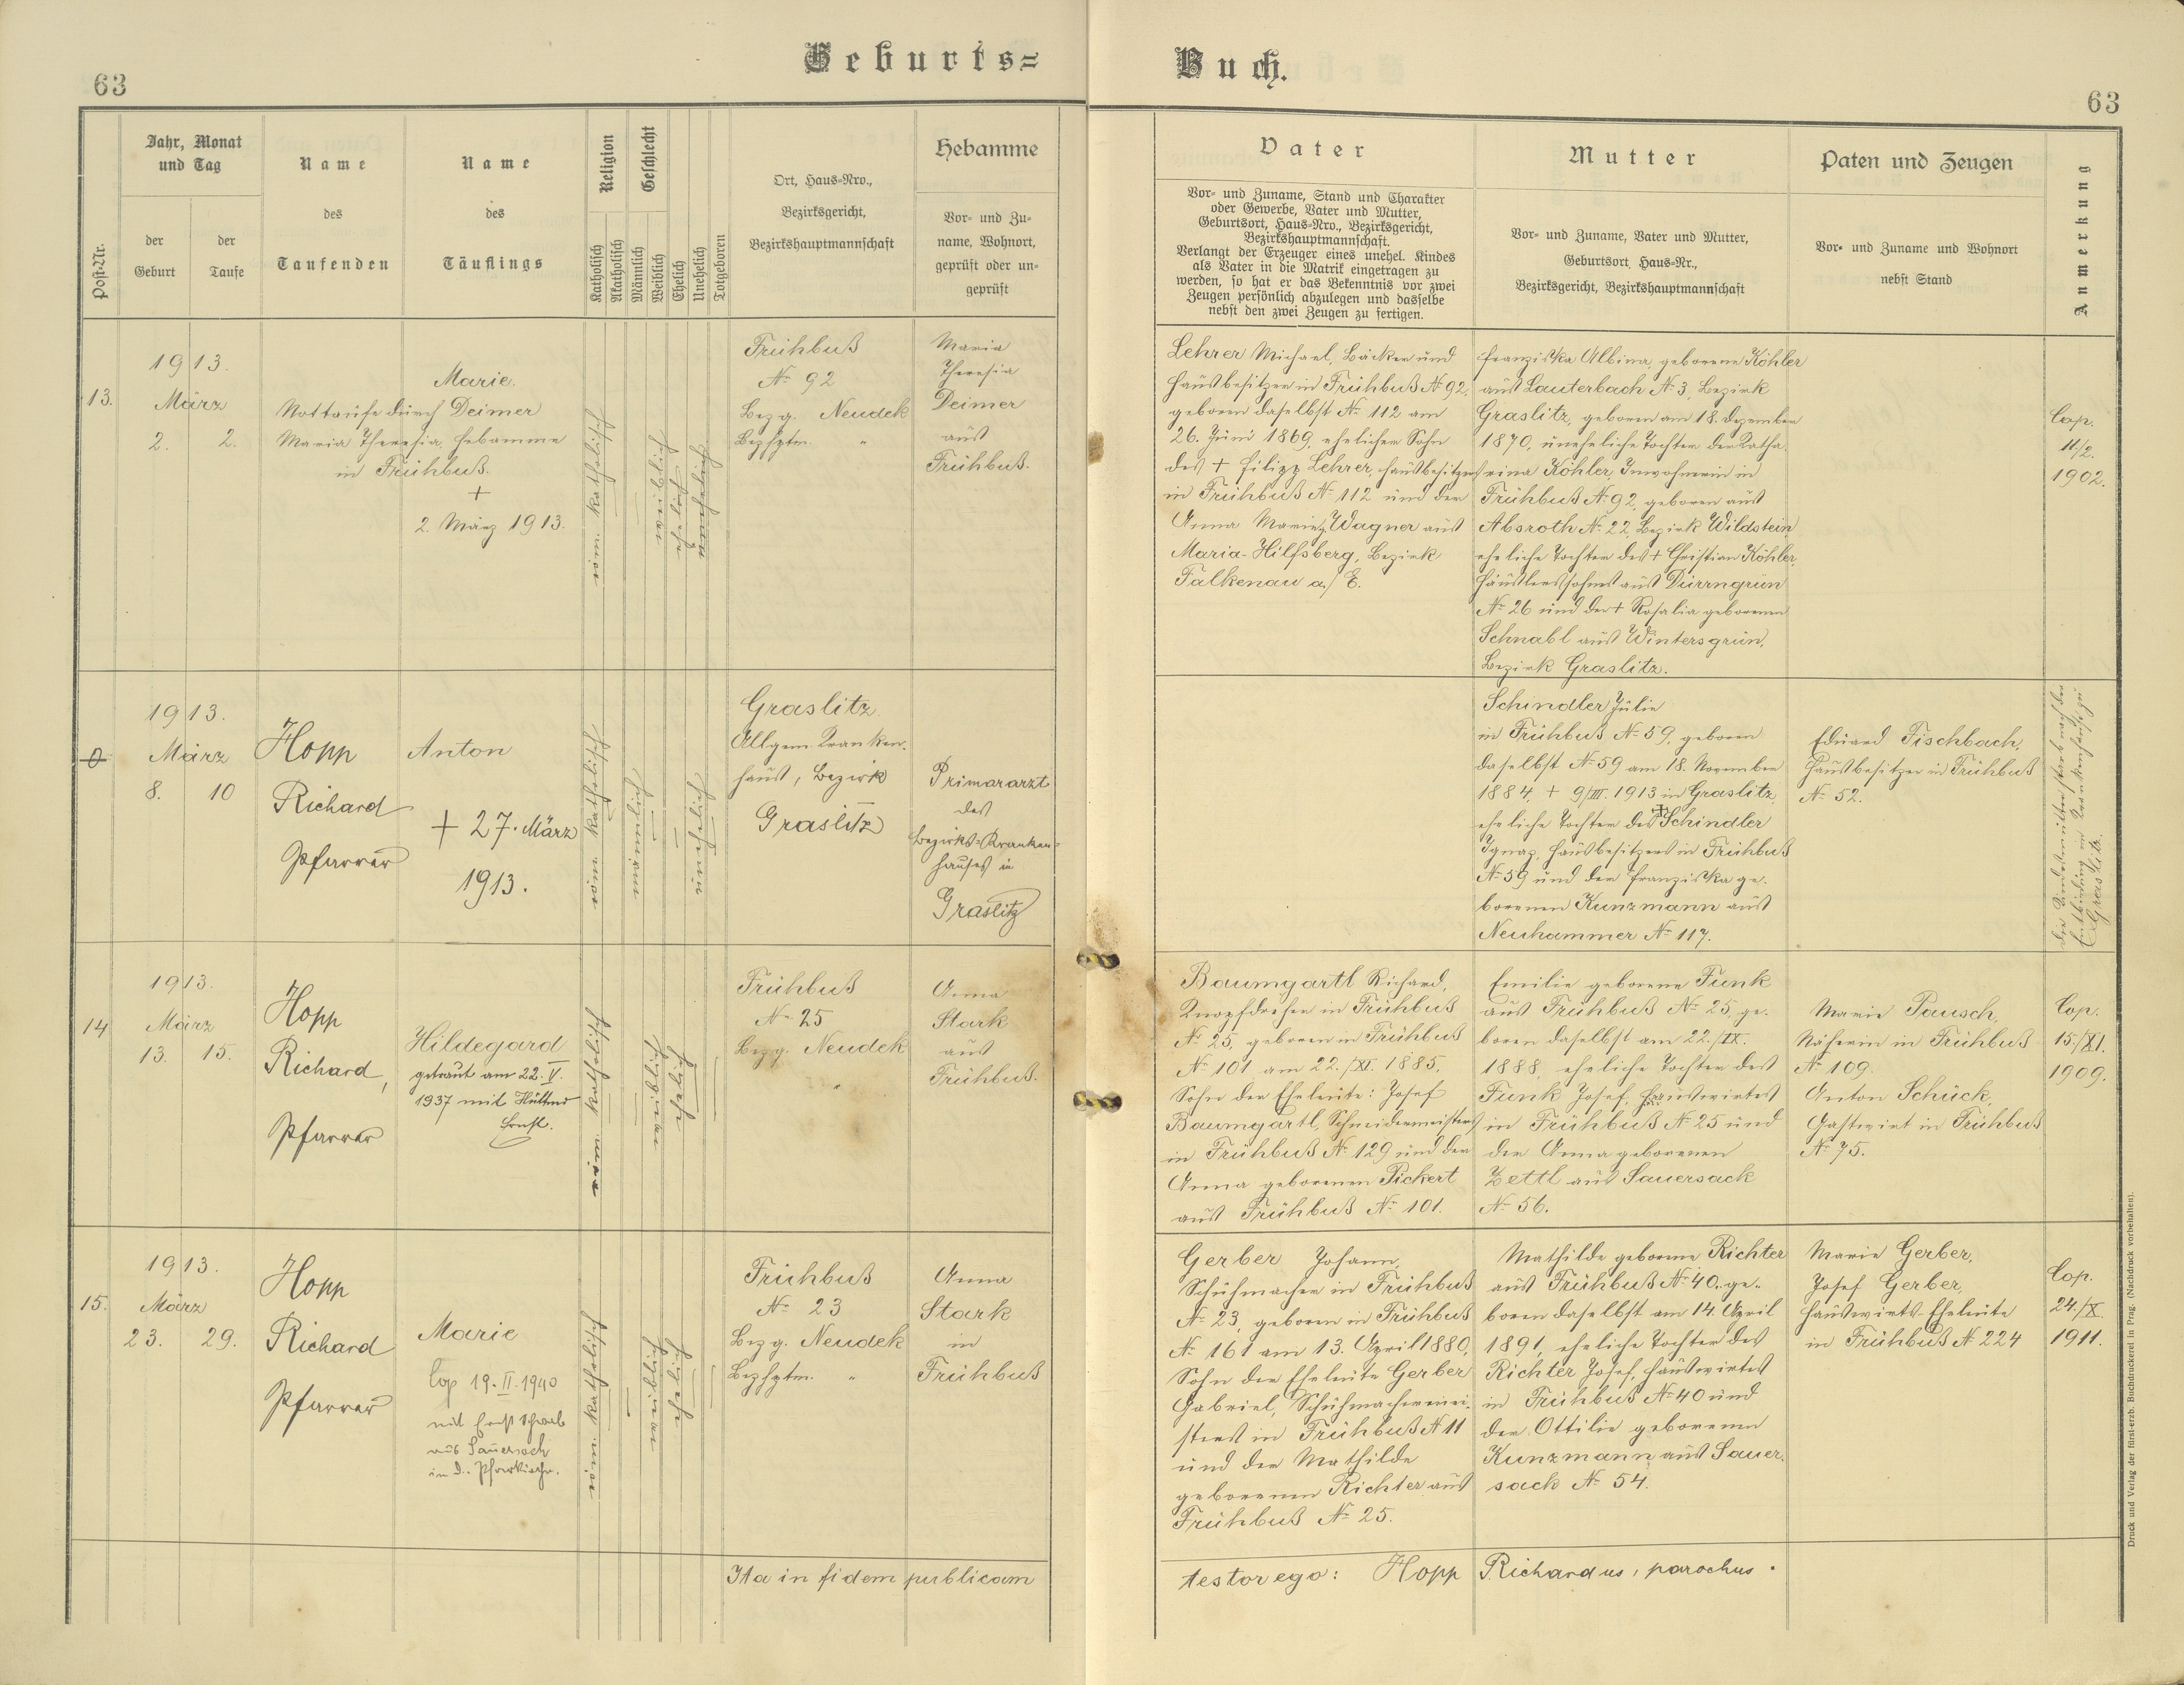 Geburts=
Buch.
63
63
Post-Nr.
Jahr, Monat
und Tag
der
Geburt
der
Taufe
Name
des
Taufenden
Name
des
Täuflings
Religion
Katholisch
Akatholisch
Geschlecht
Männlich
Weiblich
Ehelich
Unehelich
Totgeboren
Ort, Haus=Nro.,
Bezirksgericht,
Bezirkshauptmannschaft
Hebamme
Vor= und Zu=
name, Wohnort,
geprüft oder un=
geprüft
Vater
Vor= und Zuname, Stand und Charakter
oder Gewerbe, Vater und Mutter,
Geburtsort, Haus=Nro., Bezirksgericht,
Bezirkshauptmannschaft.
Verlangt der Erzeuger eines unehel. Kindes
als Vater in die Matrik eingetragen zu
werden, so hat er das Bekenntnis vor zwei
Zeugen persönlich abzulegen und dasselbe
nebst den zwei Zeugen zu fertigen.
Mutter
Vor= und Zuname, Vater und Mutter,
Geburtsort, Haus=Nr.,
Bezirksgericht, Bezirkshauptmannschaft
Paten und Zeugen
Vor= und Zuname und Wohnort
nebst Stand
Anmerkung
13.
1913.
März
2. 2.
Nottaufe durch Deimer
Maria Theresia, Hebamme
in Frühbuß.
Marie.
+
2. März 1913.
röm. katholisch
Frühbuß
No 92
Bezg. Neudek
Bezhptm. "
Maria
Theresia
Deimer
aus
Frühbuß.
Lehrer Michael, Bäcker und
Hausbesitzer in Frühbuß No 92,
geboren daselbst No 112 am
26. Juni 1869, ehelicher Sohn
des + Filipp Lehrer, Hausbesitzers
in Frühbuß No 112 und der
Anna Maria, Wagner aus
Maria-Hilfsberg, Bezirk
Falkenau a/ E.
Franziska Albina, geborene Köhler
aus Lauterbach No 3, Bezirk
Graslitz, geboren am 18. Dezember
1870, uneheliche Tochter der Katha-
rina Köhler, Inwohnerin in
Frühbuß No 92, geboren aus
Absroth No 22, Bezirk Wildstein,
eheliche Tochter des + Christian Köhler,
Häuslerssohnes aus Dürrngrün
No 26 und der + Rosalia geborenen
Schnabl aus Wintersgrün,
Bezirk Graslitz.
Cop.
11./2.
1902.
0
1913.
März
8. 10
Hopp
Richard
Pfarrer
Anton
+ 27. März
1913.
röm. katholisch
unehelich
Graslitz
Allgem. Kranken-
haus, Bezirk
Graslitz
Primararzt
des
Bezirks-Kranken=
hauses in
Graslitz
Schindler Julie
in Frühbuß No 59, geboren
daselbst No 59 am 18. November
1884, + 9/III. 1913 in Graslitz,
eheliche Tochter des + Schindler
Ignaz, Hausbesitzers in Frühbuß
No 59 und der Franziska ge-
borenen Kunzmann aus
Neuhammer No 117.
Eduard Fischbach,
Hausbesitzer in Frühbuß
No 52.
Entbindung im Krankenhause zu
Graslitz.
14
1913.
März
13. 15.
Hopp
Richard,
Pfarrer
Hildegard
getraut am 22. V.
1937 mit Hüttner
Ernst.
röm. katholisch
Frühbuß
No 25
Bezg. Neudek
"
Anna
Stark
aus
Frühbuß.
Baumgartl Richard,
Knopfdreher in Frühbuß
No 25, geboren in Frühbuß
No 101 am 22./XI. 1885,
Sohn der Eheleute: Josef
Baumgartl, Schneidermeisters
in Frühbuß No 129 und der
Anna geborenen Pickert
aus Frühbuß No 101.
Emilie geborene Funk
aus Frühbuß No 25, ge-
boren daselbst am 22./IX.
1888, eheliche Tochter des
Funk Josef, Hauswirtes
in Frühbuß No 25 und
der Anna geborenen
Zettl aus Sauersack
No 56.
Marie Pausch,
Näherin in Frühbuß
No 109.
Anton Schück,
Gastwirt in Frühbuß
No 75.
Cop.
15./XI.
1909.
15.
1913.
März
23. 29.
Hopp
Richard
Pfarrer
Marie
Cop 19. II. 1940
mit Ernst Schwab
aus Sauersack
in d. Pfarrkirche.
röm. katholisch
Frühbuß
No 23
Bezg. Neudek
Bezhptm. "
Anna
Stark
in
Frühbuß
Gerber Johann,
Schuhmacher in Frühbuß
No 23, geboren in Frühbuß
No 161 am 13. April 1880,
Sohn der Eheleute Gerber
Gabriel, Schuhmachermei-
sters in Frühbuß No 11
und der Mathilde
geborenen Richter aus
Frühbuß No 25.
Mathilde geborene Richter
aus Frühbuß No 40, ge-
boren daselbst am 14. April
1891, eheliche Tochter des
Richter Josef, Hauswirtes
in Frühbuß No 40 und
der Ottilie geborenen
Kunzmann aus Sauer-
sack No 54.
Marie Gerber,
Josef Gerber,
Hauswirts-Eheleute
in Frühbuß No 224
Cop.
24./X.
1911.
Ita in fidem publicam
testor ego: Hopp Richardus, parochus.
Druck und Verlag der fürst-erzb. Buchdruckerei in Prag. (Nachdruck vorbehalten).